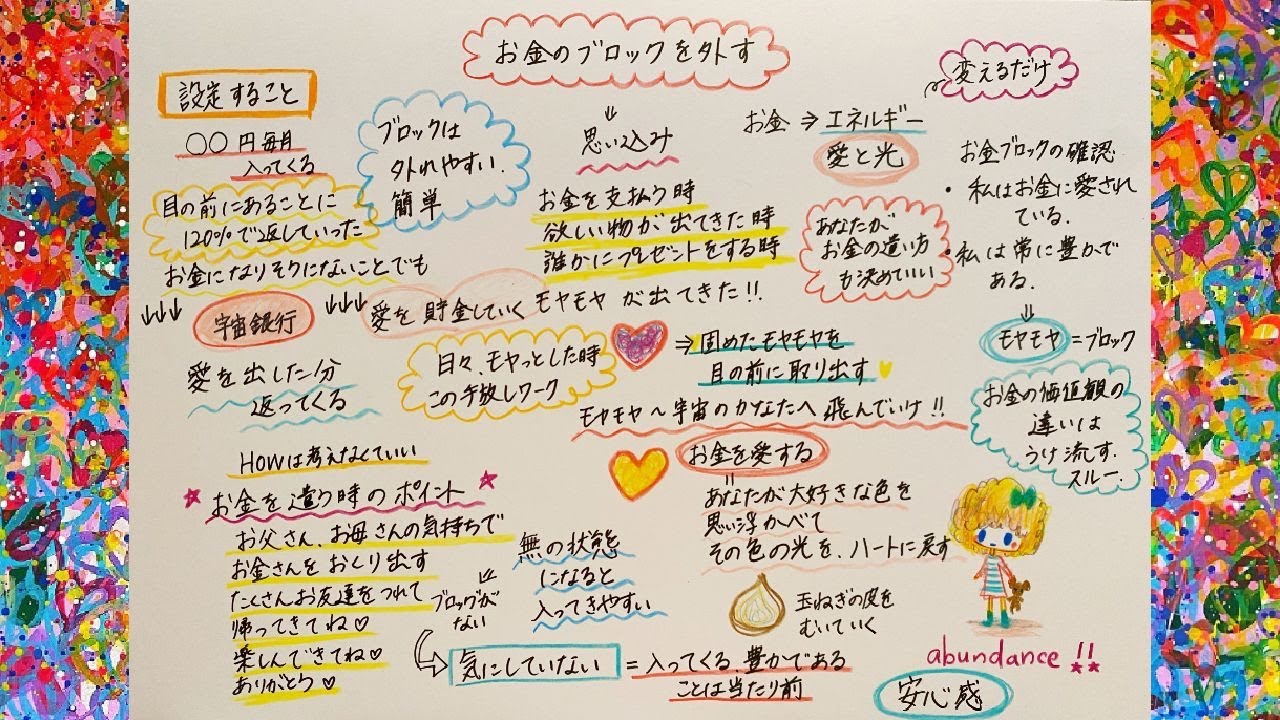 お金のブロックを外す
設定すること
○○円毎月
入ってくる
目の前にあることに
120%で返していった
お金になりそうにないことでも
↓↓↓
宇宙銀行
↓↓↓
愛を貯金していく
愛を出した分
返ってくる
ブロックは
外れやすい.
簡単
⇓
思い込み
お金を支払う時
欲しい物が出てきた時
誰かにプレゼントをする時
モヤモヤが出てきた!!
お金⇒エネルギー
愛と光
あなたが
お金の遣い方
も決めていい
変えるだけ
お金ブロックの確認
・私はお金に愛され
ている.
・私は常に豊かで
ある.
⇓
モヤモヤ=ブロック
お金の価値観の
違いは
うけ流す.
スルー.
日々、モヤっとした時
この手放しワーク
⇒固めたモヤモヤを
目の前に取り出す
モヤモヤ～宇宙のかなたへ飛んでいけ!!
お金を愛する
あなたが大好きな色を
思い浮かべて
その色の光を、ハートに戻す
玉ねぎの皮を
むいていく
Howは考えなくていい
★お金を遣う時のポイント★
お父さん、お母さんの気持ちで
お金さんをおくり出す
たくさんお友達をつれて
帰ってきてね♡
楽しんできてね♡
ありがとう♡
無の状態
になると
入ってきやすい
ブロックが
ない
気にしていない
=入ってくる.豊かである
ことは当たり前
abundance!!
安心感